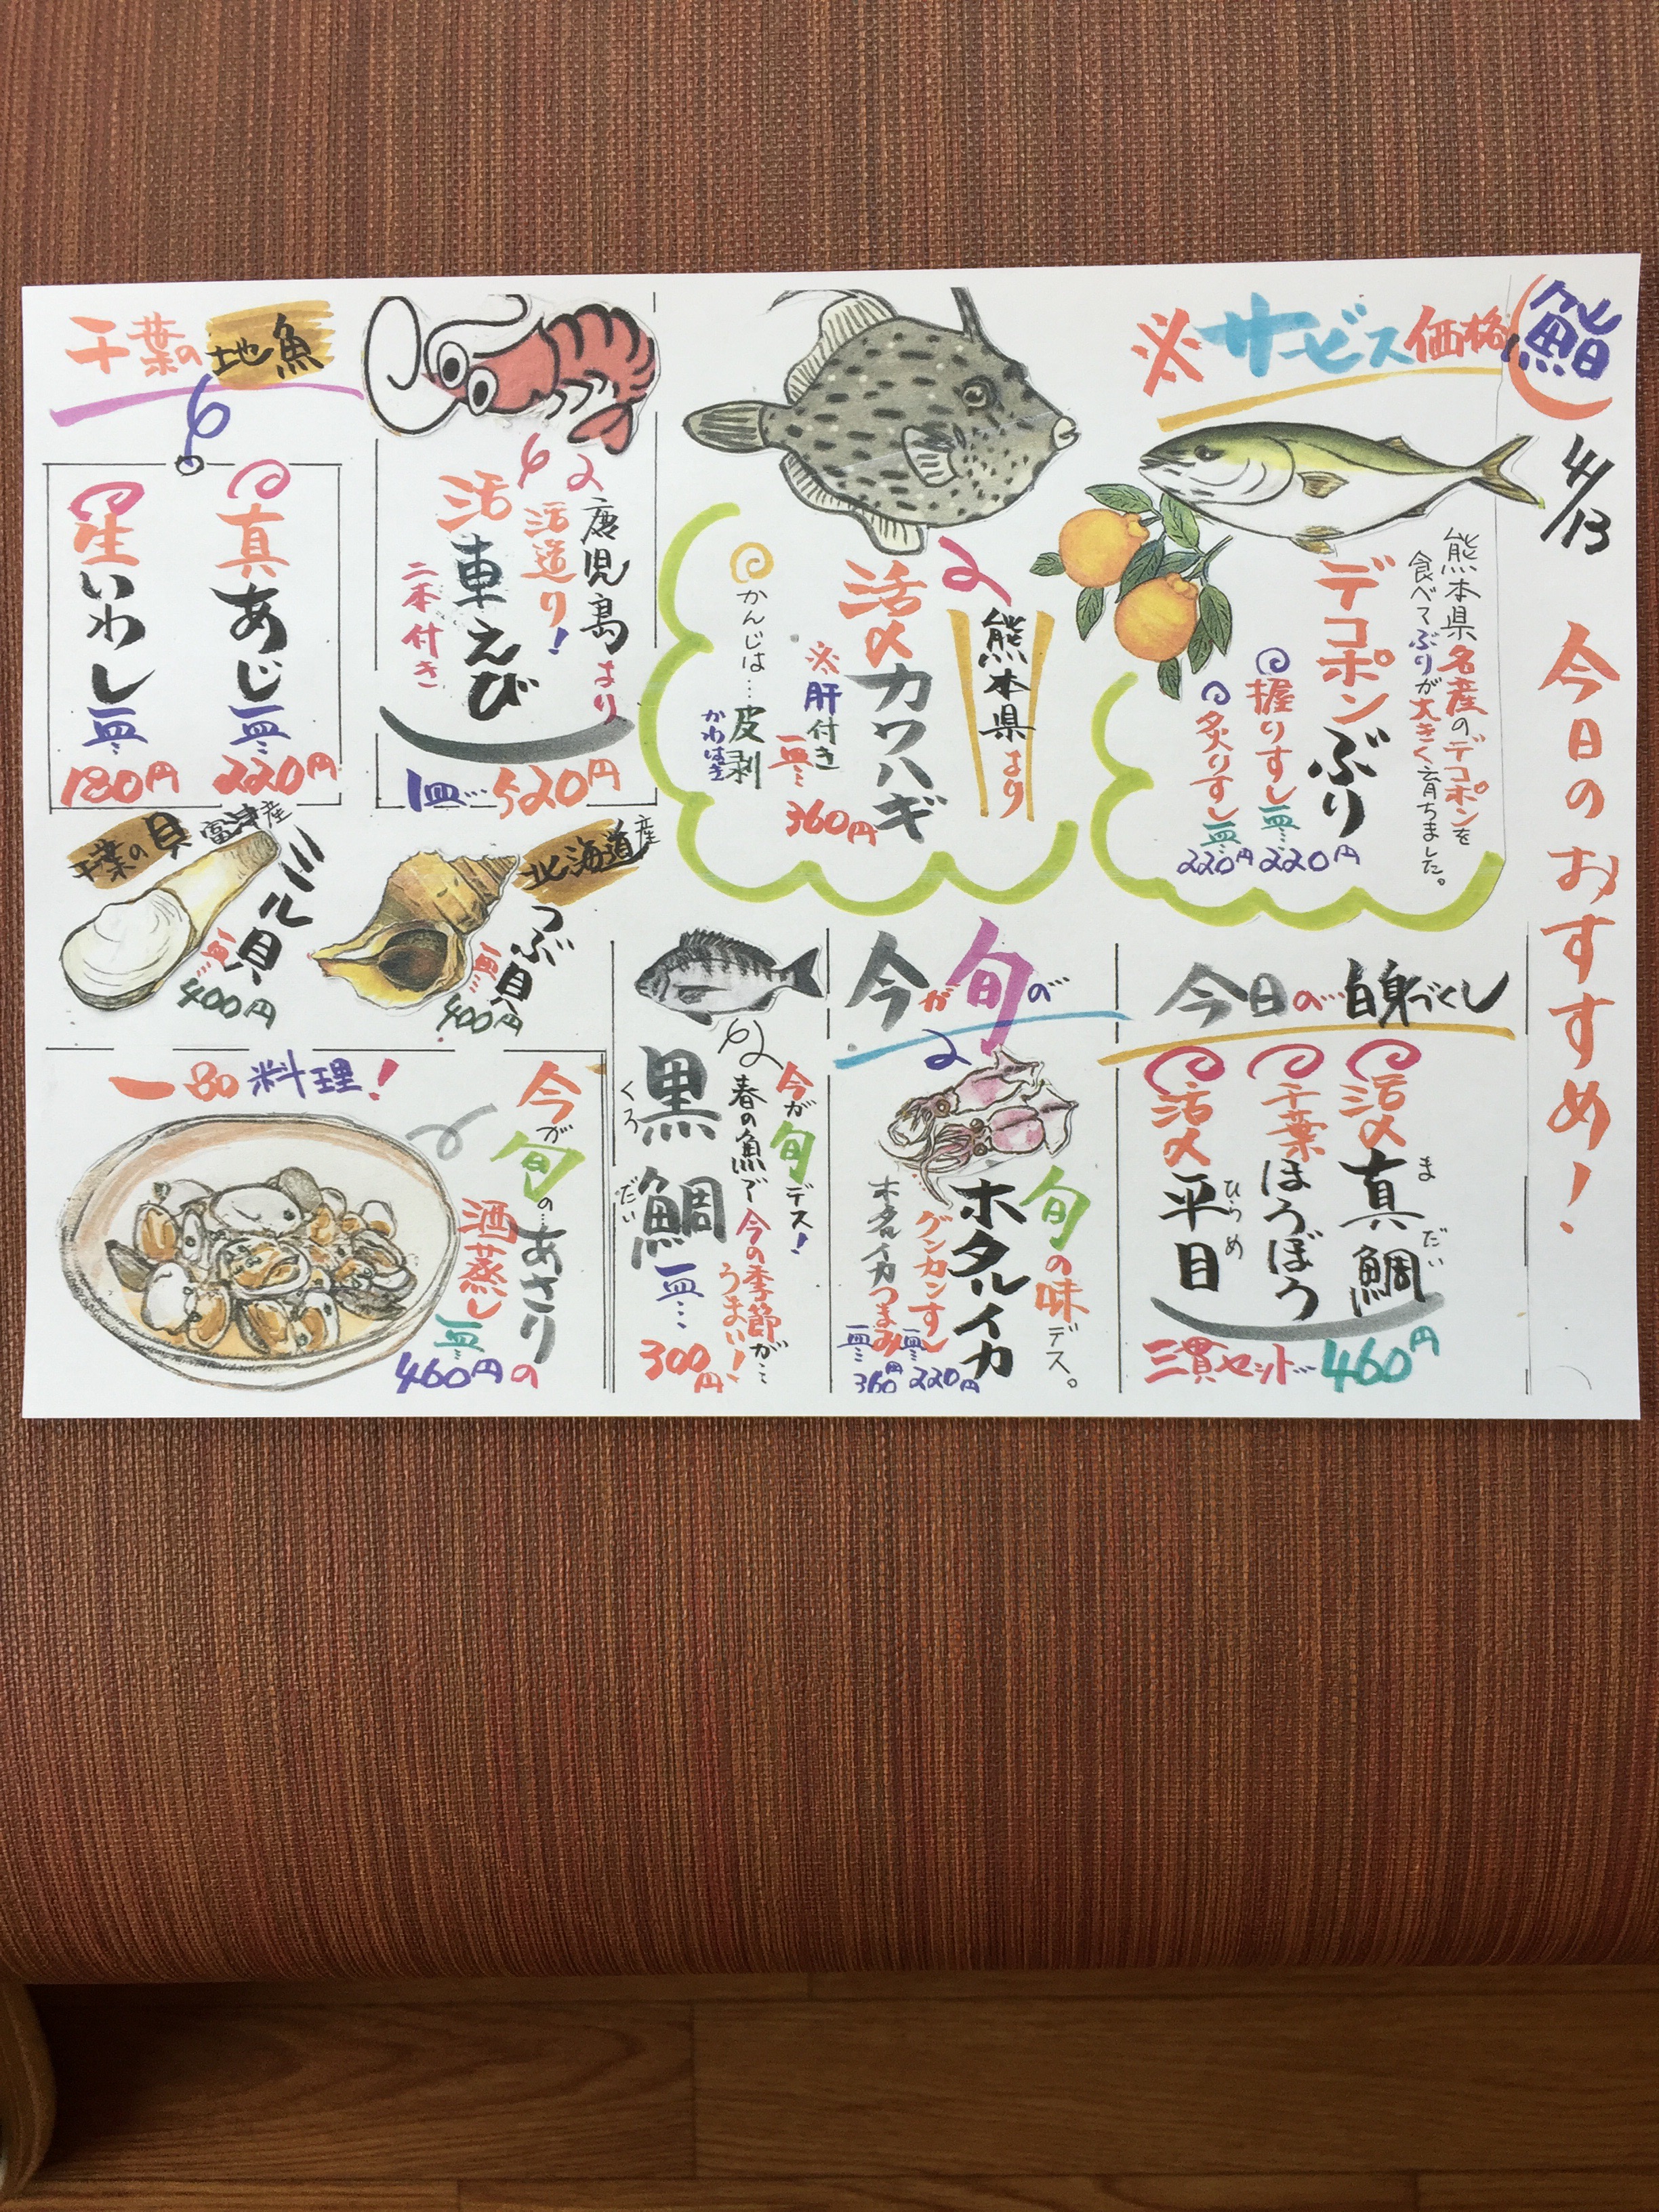 鮨
4/13
今日のおすすめ!
※サービス価格
熊本県名産のデコポンを
食べてぶりが大きく育ちました。
デコポンぶり
握りすし一皿…220円
炙りすし一皿…220円
熊本県より
活〆カワハギ
※肝付き
一皿…360円
かんじは…皮剥
かわはぎ
鹿児島より
活造り!
活車えび
二本付き
1皿…520円
千葉の地魚
真あじ一皿…220円
生いわし一皿…180円
北海道産
つぶ貝
一皿…400円
千葉の貝
富津産
ミル貝
一皿…400円
今日の…白身づくし
活〆真鯛
まだい
千葉ほうぼう
活〆平目
ひらめ
三貫セット…460円
今が旬の
旬の味デス。
ホタルイカ
グンカンすし一皿…220円
ホタルイカつまみ一皿…360円
今が旬デス!
春の魚で今の季節が…
うまい!
黒鯛
くろだい
一皿…300円
一品料理!
今が旬の…あさり
の
酒蒸し
一皿…460円